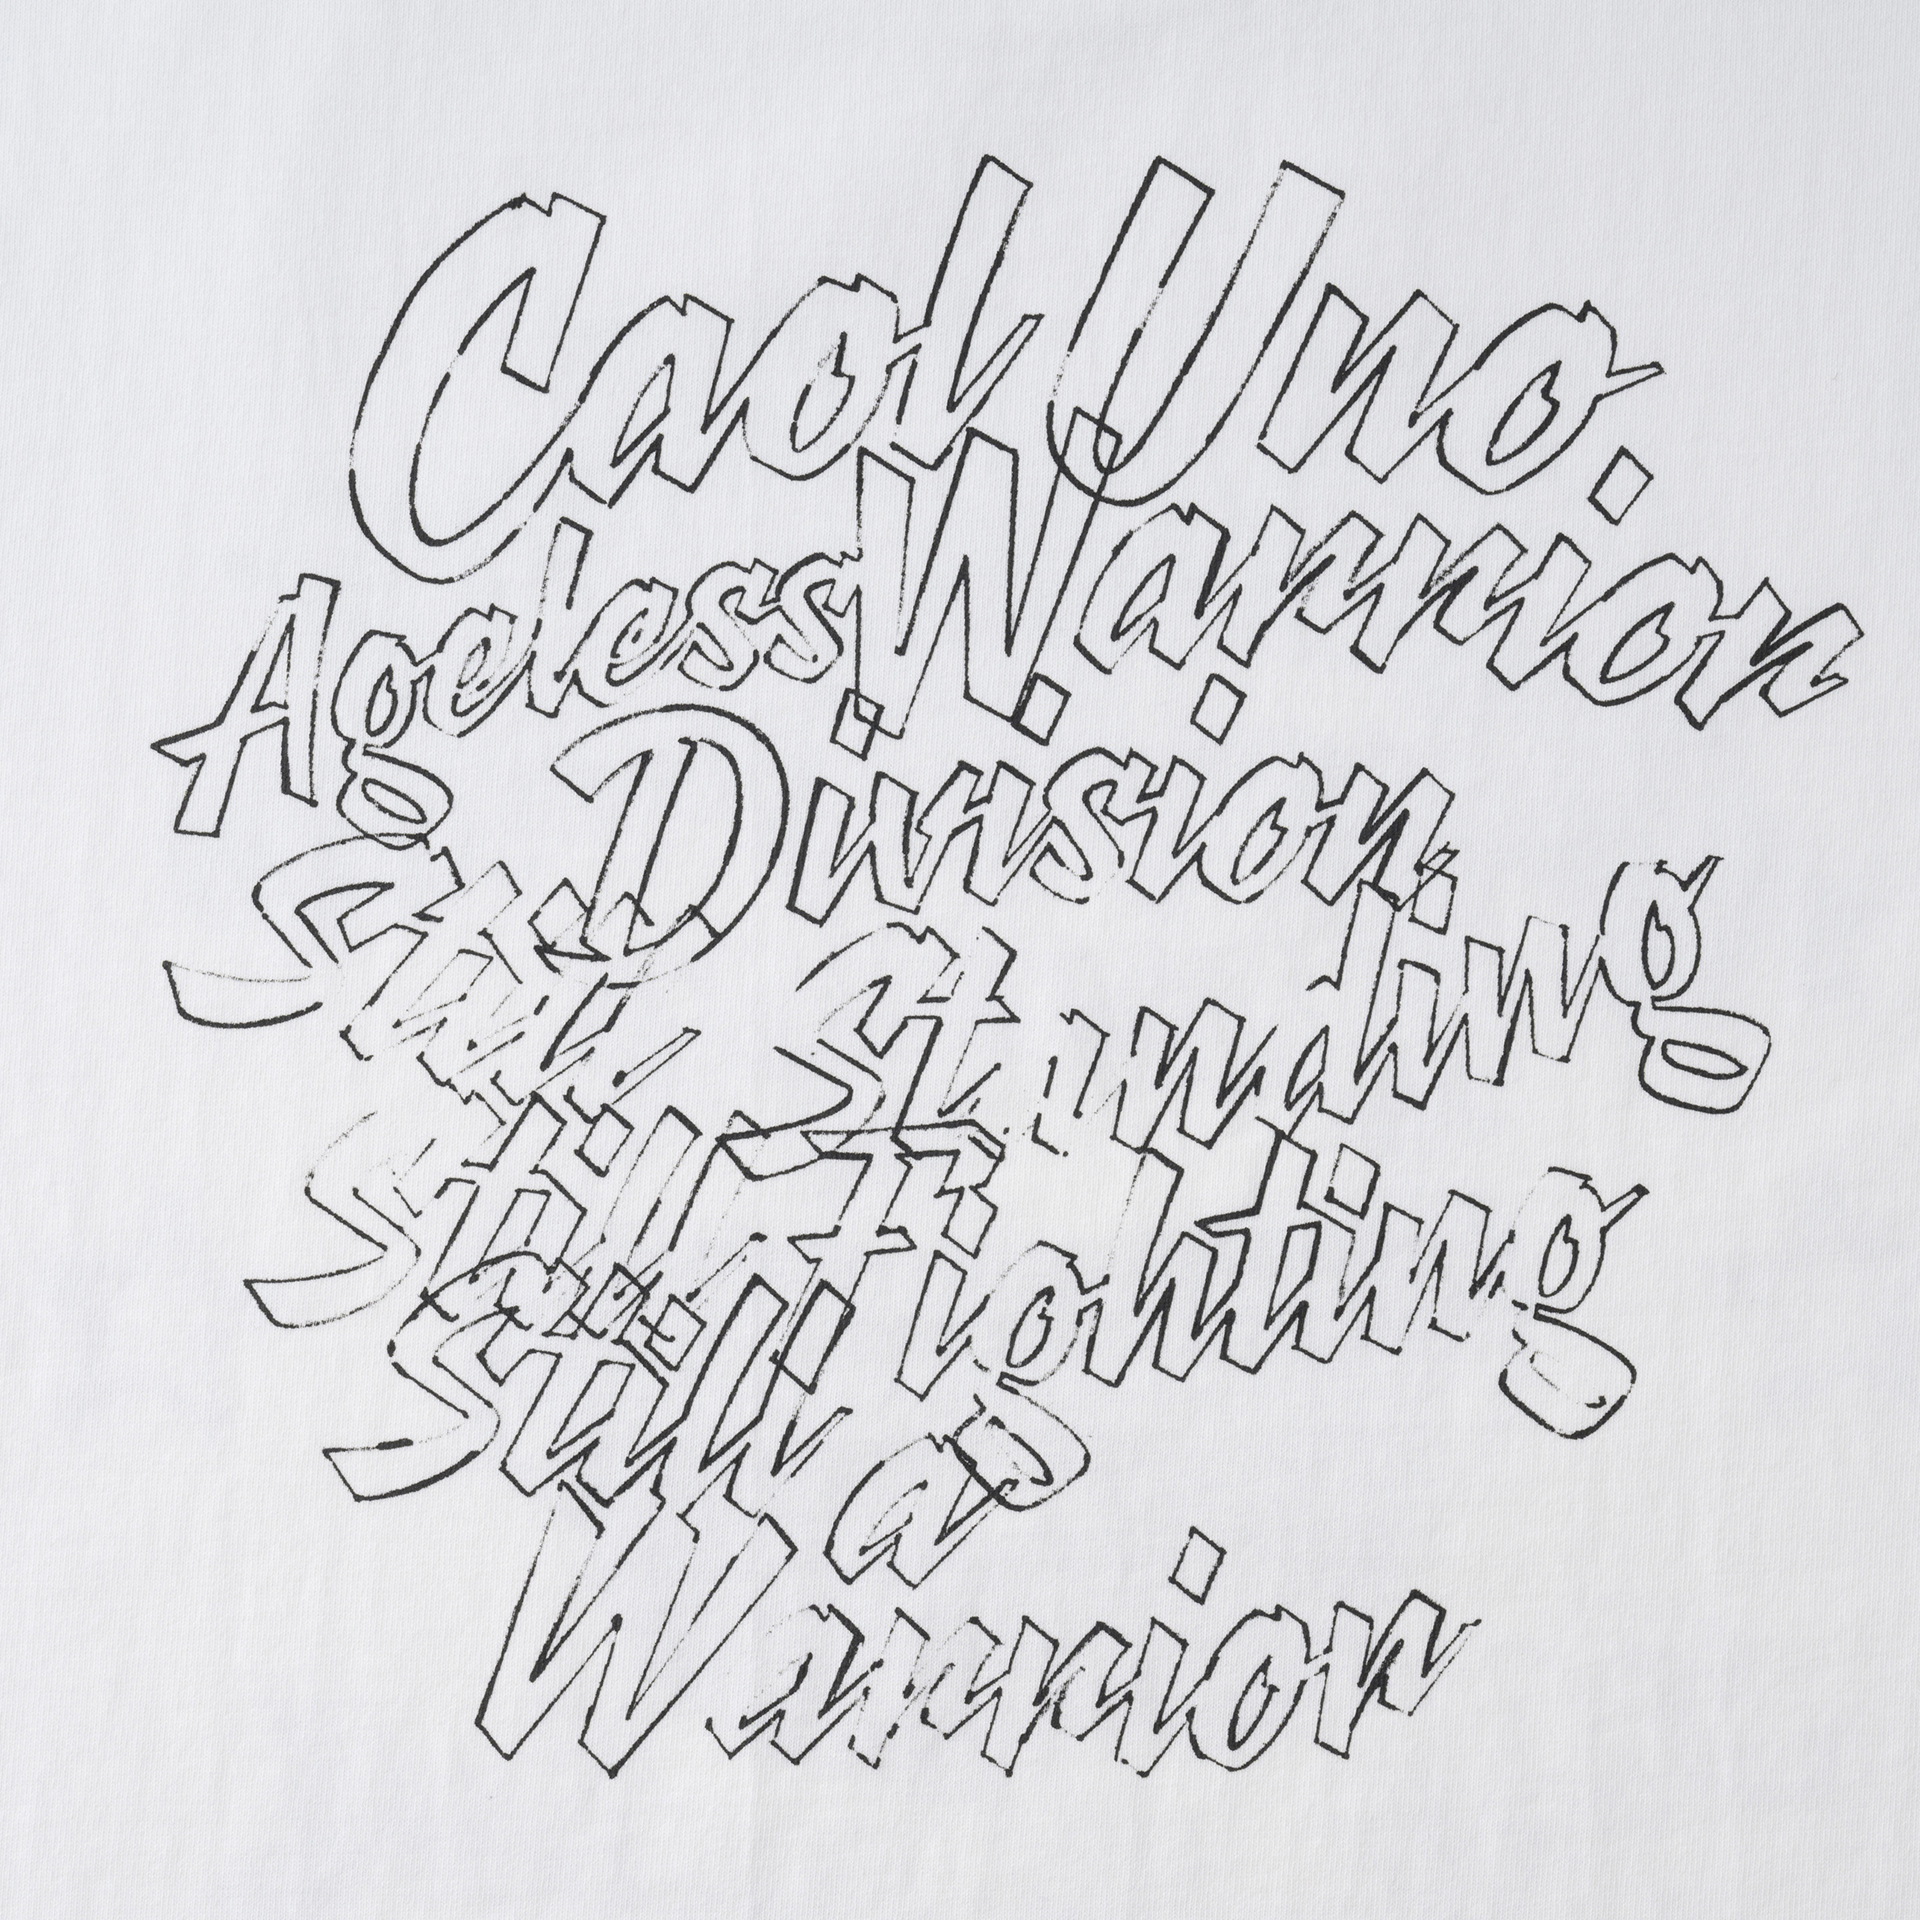 Caol Uno.
Ageless Warrior
Division.
Still Standing
Still Fighting
Still a
Warrior